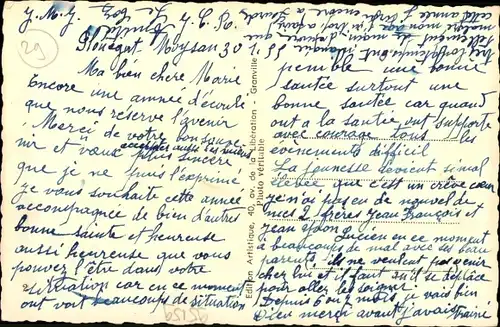 29
J.M.J.
Plouegat Moysan 30 1 55
Ma bien chere Marie
Encore une année d'écoulé
que nous reserve l'avenir
Merci de votre bon souve
nir et vœux acceptés aussi les miens
plus sincère
que je ne puis l'exprimé
je vous souhaite cette année
accompagnée de bien d'autres
bonne sainte et heureuse
aussi heureuse que vous
pouvez l'être dans votre
situation car en ce moment
ont voit beaucoups de situation
Edition Artistique, 40, av. de la Libération - Granville
Photo véritable
penible une bonne
santée surtout une
bonne santée car quand
ont a la santée ont supporte
avec courage tous les
évènements difficil
La jeunesse devient si mal
élevée que c'est un crève cœur
je n'ai pas eu de nouvel de
mes 2 frères Jean François et
Jean
Lucien en ce moment
a beaucoups de mal avec ses beau
parents ils ne veulent pas venir
cher lui et il faut qu'il se déplace
pour aller les soigner
Depuis 6 ou 7 mois je vais bien
Dieu merci avant j'avais trainé